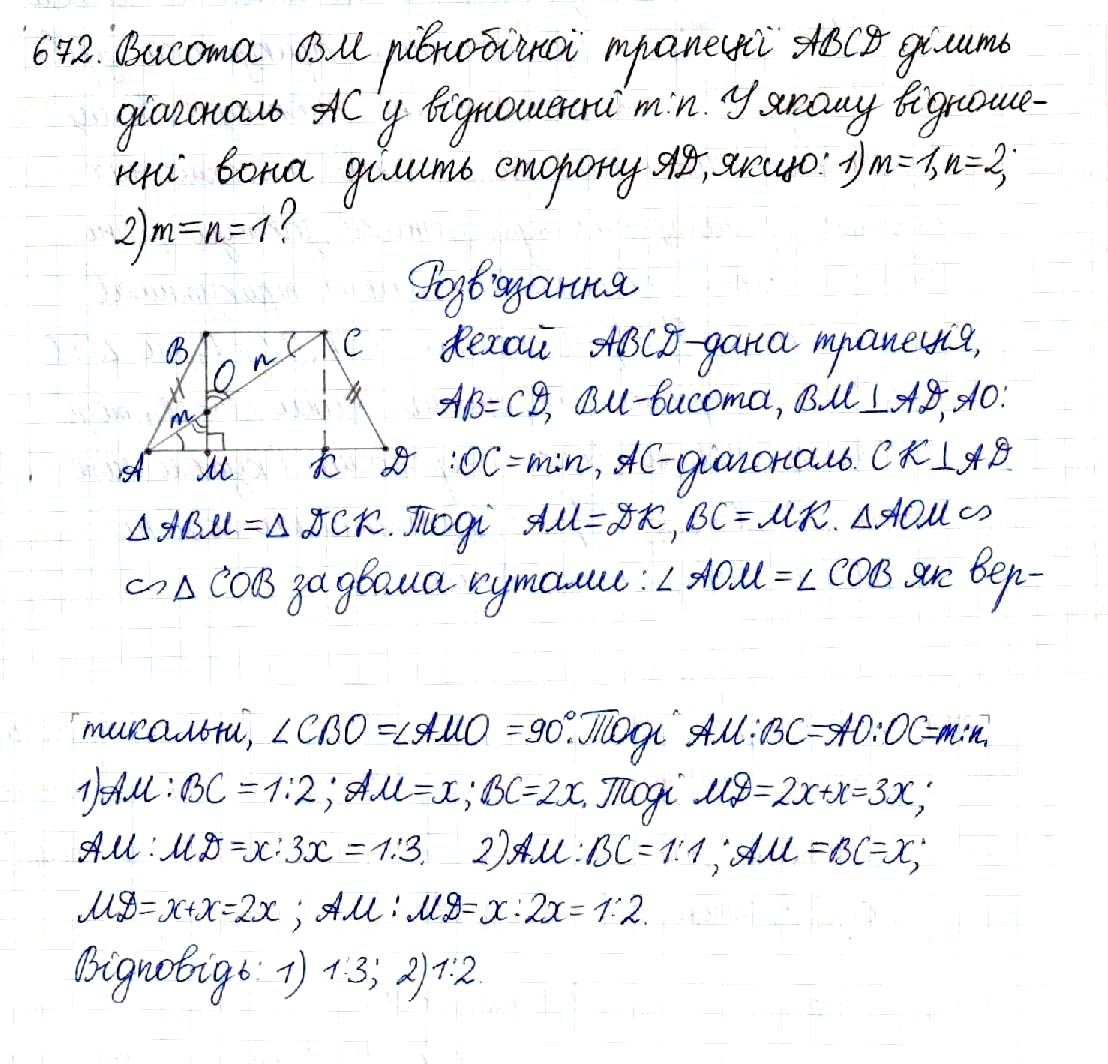 672. Висота BM рівнобічної трапеції ABCD ділить
діагональ AC у відношенні m:n. У якому відноше-
нні вона ділить сторону AD, якщо: 1) m=1, n=2;
2) m=n=1?
Розв'язання
B O n C
m
A M K D
Нехай ABCD-дана трапеція,
AB=CD, BM-висота, BM⊥AD, AO:
:OC=m:n, AC-діагональ. CK⊥AD
△ABM=△DCK. Тоді AM=DK, BC=MK. △AOM∽
∽△COB за двома кутами: ∠AOM=∠COB як вер-
тикальні, ∠CBO=∠AMO=90°. Тоді AM:BC=AO:OC=m:n.
1) AM:BC=1:2; AM=x; BC=2x. Тоді MD=2x+x=3x;
AM:MD=x:3x=1:3. 2) AM:BC=1:1; AM=BC=x;
MD=x+x=2x; AM:MD=x:2x=1:2.
Відповідь: 1) 1:3; 2) 1:2.